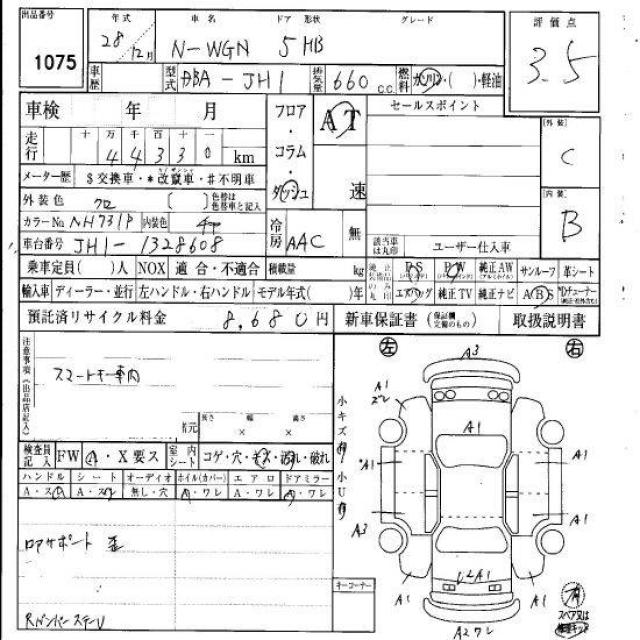 出品番号 年式 車名 ドア 形状 グレード 評価点
1075 28 12月 N-WGN 5 HB 3.5
車歴 型式 DBA-JH1 排気量 660 c.c. 燃料 ガソリン・( )・軽油
車検 年 月 フロア・コラム・ダッシュ AT 速 セールスポイント [外装]
走行 十 万 千 百 十 一 C
4 4 3 3 0 km
メーター歴 $交換車・*改竄車・#不明車 [内装]
外装色 クロ ( ) 色替は色替車と記入 B
カラーNo NH731P 内装色 冷房 AAC 無 該当車は丸印 ユーザー仕入車
車台番号 JH1-1328608
乗車定員( )人 NOX 適合・不適合 積載量 kg 純正品の丸印 PS PW 純正AW サンルーフ 革シート
輸入車 ディーラー・並行 左ハンドル・右ハンドル モデル年式( )年 エアバッグ 純正TV 純正ナビ ABS
預託済リサイクル料金 8,680円 新車保証書 (保証欄完備のもの) 取扱説明書
注意事項(出品店記入) 左 右
スマートキー車内
諸元 長さ 幅 高さ
× ×
検査員記入 FW A・X要ス 室内シート コゲ・穴・キズ・汚れ・破れ
ハンドル シート オーディオ ホイル(カバー) エアロ ドアミラー
A・スレ A・スレ 無し・穴 A・ワレ A・ワレ A・ワレ
ロアサポート 歪
RバンパーステーU
キーコーナー
小キズ有 小U有
A3
A1
ズレ
A1
A1
A1
A1
A3
A1
A1
A1
A2ワレ
有
スペア又は
修理キット